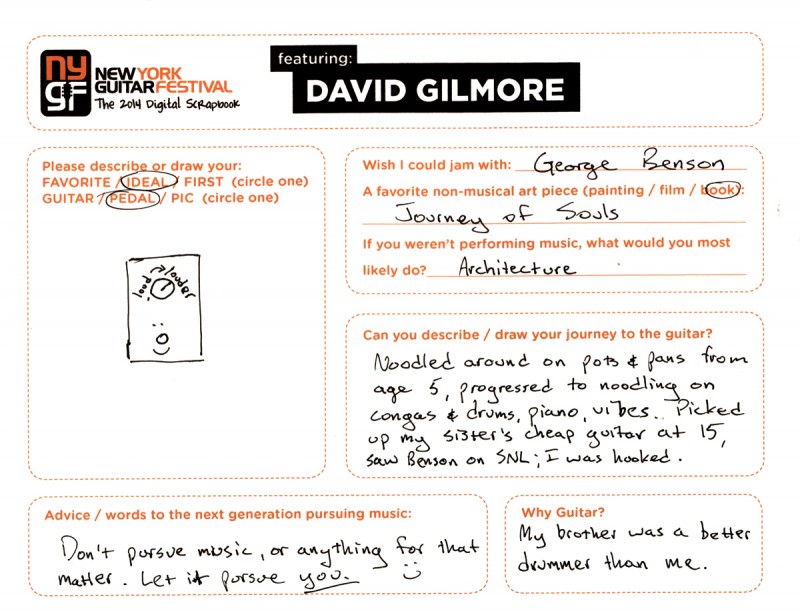 ny
gf
NEW YORK
GUITAR FESTIVAL
The 2014 Digital Scrapbook
featuring:
DAVID GILMORE
Please describe or draw your:
FAVORITE / IDEAL / FIRST (circle one)
GUITAR / PEDAL / PIC (circle one)
loud louder
Wish I could jam with: George Benson
A favorite non-musical art piece (painting / film / book):
Journey of Souls
If you weren't performing music, what would you most
likely do? Architecture
Can you describe / draw your journey to the guitar?
Noodled around on pots & pans from
age 5, progressed to noodling on
congas & drums, piano, vibes. Picked
up my sister's cheap guitar at 15,
saw Benson on SNL; I was hooked.
Advice / words to the next generation pursuing music:
Don't pursue music, or anything for that
matter. Let it pursue you.
Why Guitar?
My brother was a better
drummer than me.